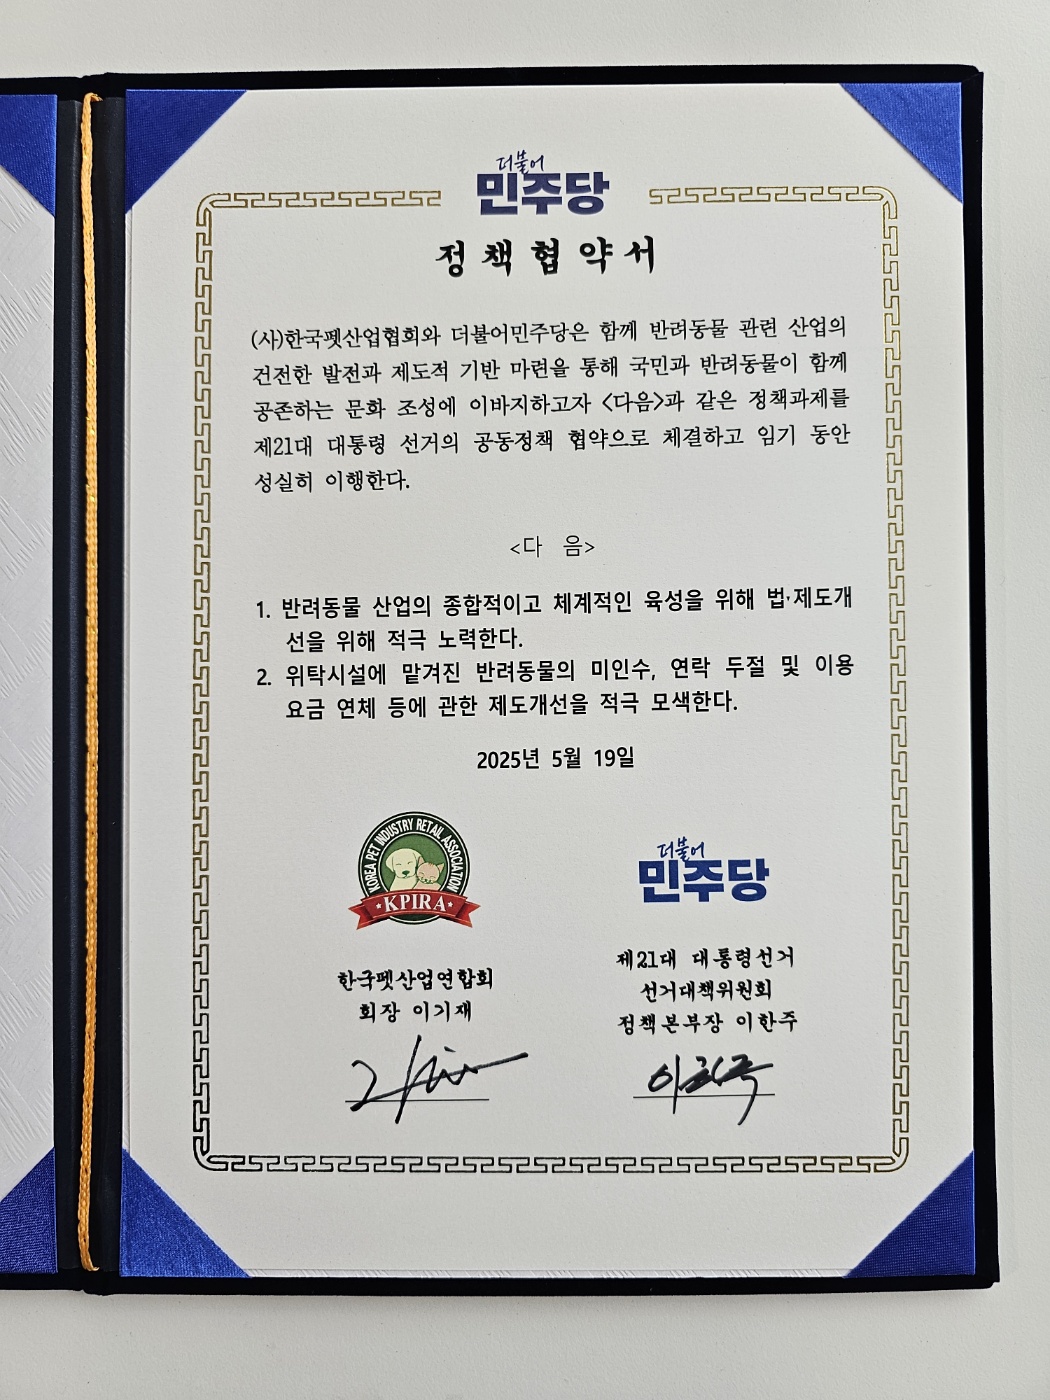 더불어
민주당
정책협약서
(사)한국펫산업협회와 더불어민주당은 함께 반려동물 관련 산업의
건전한 발전과 제도적 기반 마련을 통해 국민과 반려동물이 함께
공존하는 문화 조성에 이바지하고자 <다음>과 같은 정책과제를
제21대 대통령 선거의 공동정책 협약으로 체결하고 임기 동안
성실히 이행한다.
<다 음>
1. 반려동물 산업의 종합적이고 체계적인 육성을 위해 법·제도개
선을 위해 적극 노력한다.
2. 위탁시설에 맡겨진 반려동물의 미인수, 연락 두절 및 이용
요금 연체 등에 관한 제도개선을 적극 모색한다.
2025년 5월 19일
KOREA PET INDUSTRY RETAIL ASSOCIATION
KPIRA
한국펫산업연합회
회장 이기재
더불어
민주당
제21대 대통령선거
선거대책위원회
정책본부장 이한주
이한주